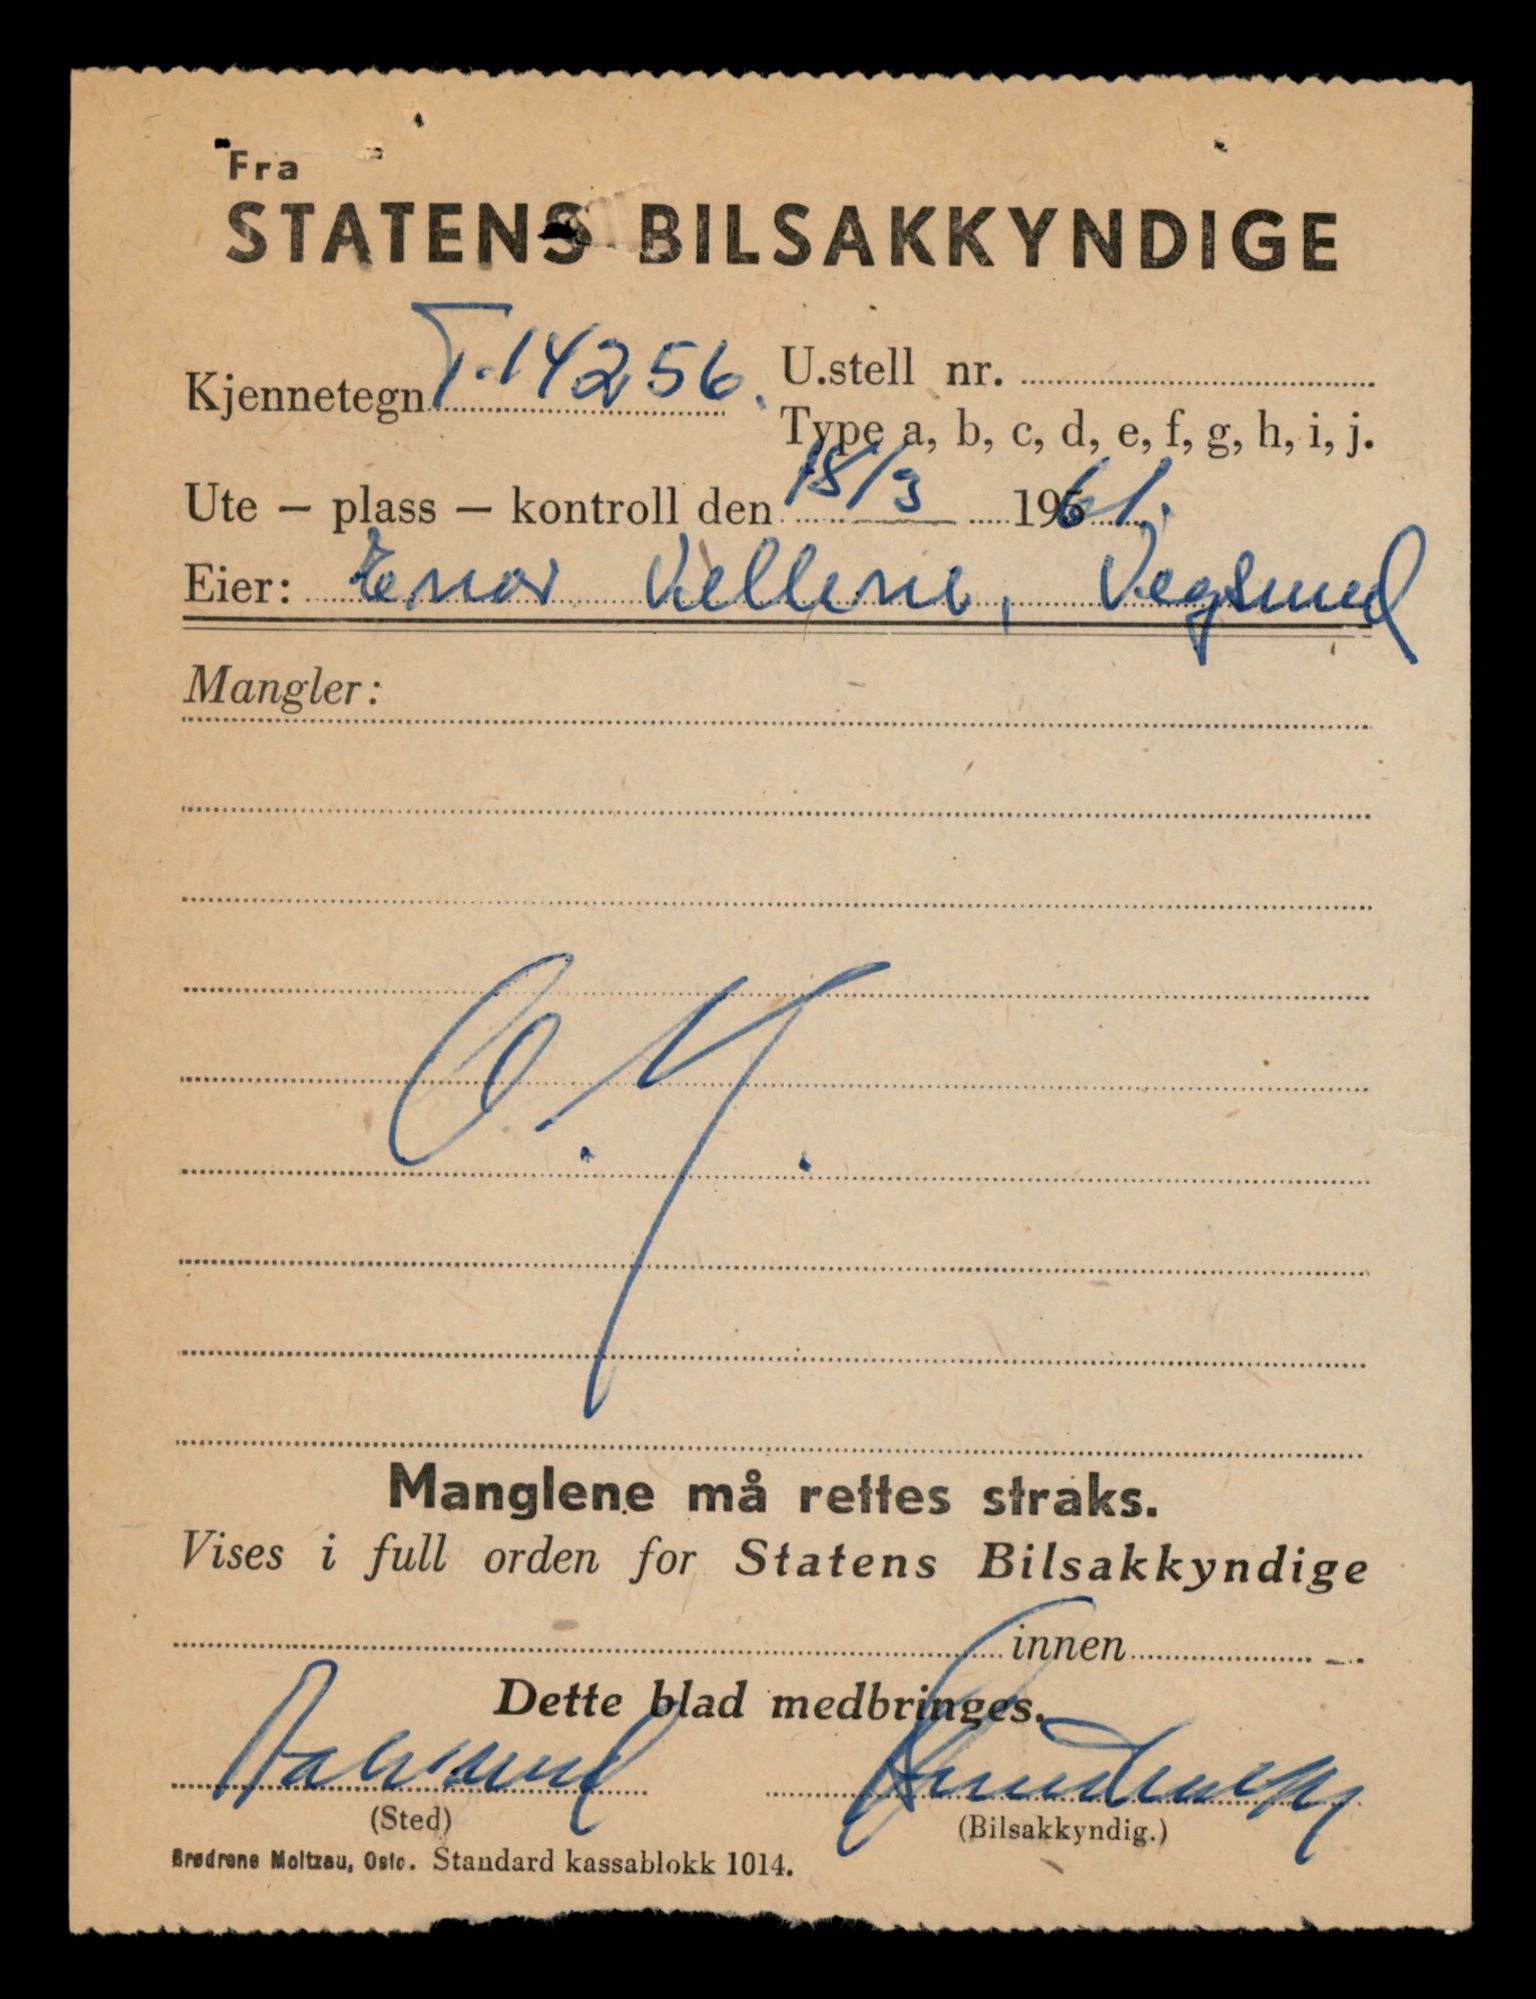 Fra
STATENS BILSAKKYNDIGE
Kjennetegn T.14256. U.stell nr.
Type a, b, c, d, e, f, g, h, i, j.
Ute – plass – kontroll den 18/3 1961.
Eier: Einar Vellene, Vegsund
Mangler:
O.K.
Manglene må rettes straks.
Vises i full orden for Statens Bilsakkyndige
innen
Dette blad medbringes.
Aalesund
(Sted) (Bilsakkyndig.)
Brødrene Moltzau, Oslo. Standard kassablokk 1014.